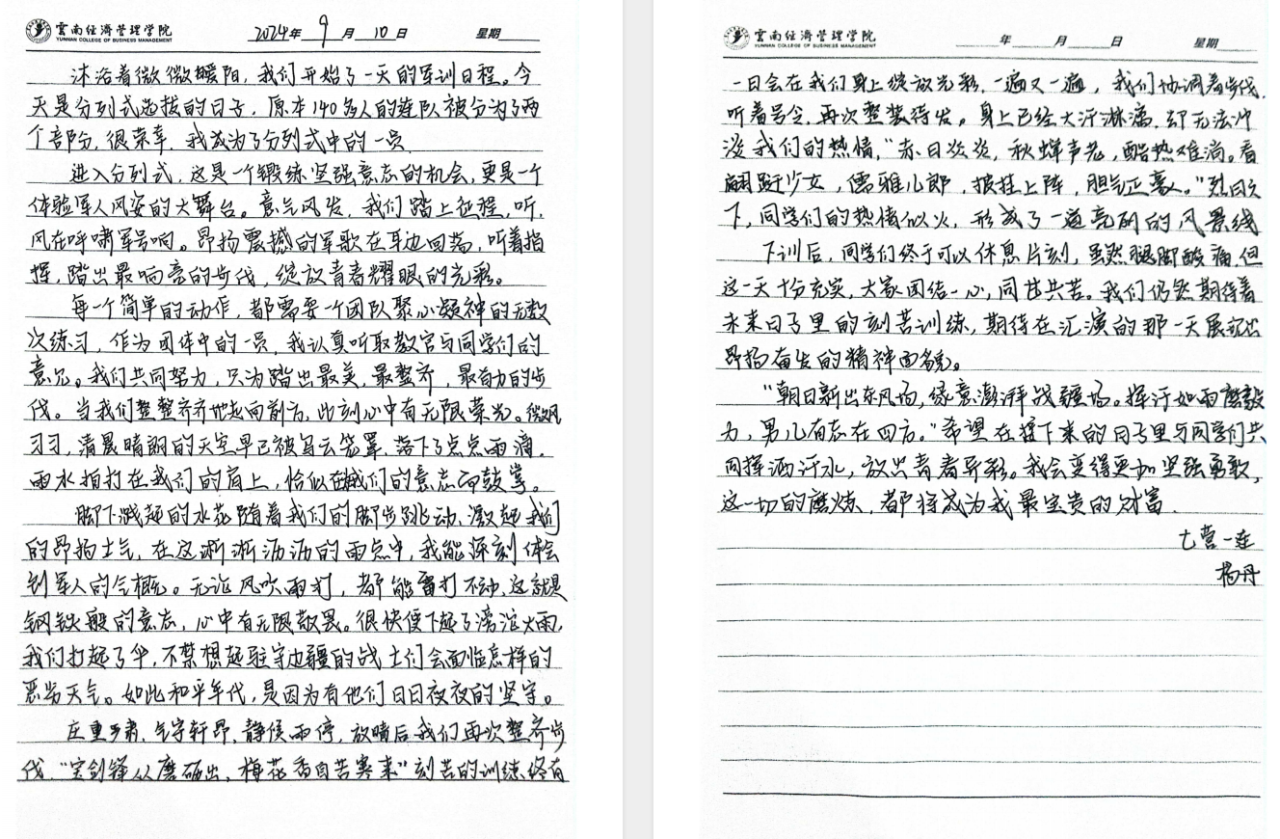 雲南经濟管理学院
YUNNAN COLLEGE OF BUSINESS MANAGEMENT
2024年 9 月 10 日 星期
沐浴着微微暖阳，我们开始了一天的军训日程。今
天是分列式选拔的日子，原本140多人的连队被分为了两
个部份，很荣幸，我成为了分列式中的一员
进入分列式，这是一个锻练坚强意志的机会，更是一个
体验军人风姿的大舞台。意气风发，我们踏上征程，听，
风在呼啸军号响。昂扬震撼的军歌在耳边回荡，听着指
挥，踏出最响亮的步伐，绽放青春耀眼的光彩。
每一个简单的动作，都需要一个团队聚心凝神的无数
次练习，作为团体中的一员，我认真听取教官与同学们的
意见。我们共同努力，只为踏出最美，最整齐，最有力的步
伐。当我们整整齐齐地走向前方，此刻心中有无限荣光。微风
习习，清晨晴朗的天空早已被乌云笼罩，落下了点点雨滴，
雨水拍打在我们的肩上，恰似在我们的意志而鼓掌。
脚下溅起的水花随着我们的脚步跳动，激起我们
的昂扬士气，在这淅淅沥沥的雨点中，我能深刻体会
到军人的气概。无论风吹雨打，都能雷打不动，这就是
钢铁般的意志，心中有无限敬畏。很快便下起了滂沱大雨，
我们打起了伞，不禁想起驻守边疆的战士们会面临怎样的
恶劣天气。如此和平年代，是因为有他们日日夜夜的坚守。
庄重严肃，气宇轩昂，静候雨停，放晴后我们再次整齐步
伐，“宝剑锋从磨砺出，梅花香自苦寒来”刻苦的训练终有
雲南经濟管理学院
YUNNAN COLLEGE OF BUSINESS MANAGEMENT
年 月 日 星期
一日会在我们身上绽放光彩，一遍又一遍，我们协调着步伐，
听着号令，再次整装待发。身上已经大汗淋漓，却无法冲
没我们的热情，“赤日炎炎，秋蝉声老，酷热难消。看
翩跹少女，儒雅儿郎，披挂上阵，胆气正豪人。”烈日之
下，同学们的热情似火，形成了一道亮丽的风景线
下训后，同学们终于可以休息片刻，虽然腿脚酸痛，但
这一天十分充实，大家团结一心，同甘共苦。我们仍然期待着
未来日子里的刻苦训练，期待在汇演的那一天展现出
昂扬奋发的精神面貌。
“朝日新出东风场，绿意澎湃战疆场。挥汗如雨磨毅
力，男儿有志在四方。”希望在接下来的日子里与同学们共
同挥洒汗水，放出青春异彩。我会变得更加坚强勇敢，
这一切的磨炼，都将成为我最宝贵的财富
七营一连
杨丹